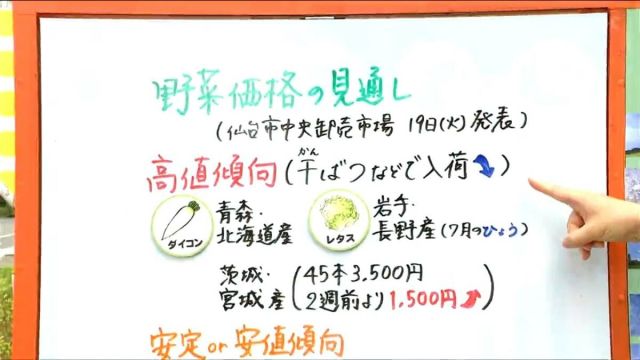 野菜価格の見通し
(仙台市中央卸売市場 19日(火)発表)
高値傾向(干ばつなどで入荷)
かん
ダイコン
青森・
北海道産
レタス
岩手・
長野産(7月のひょう)
茨城・
宮城産
45本3,500円
2週前より1,500円
安定or安値傾向